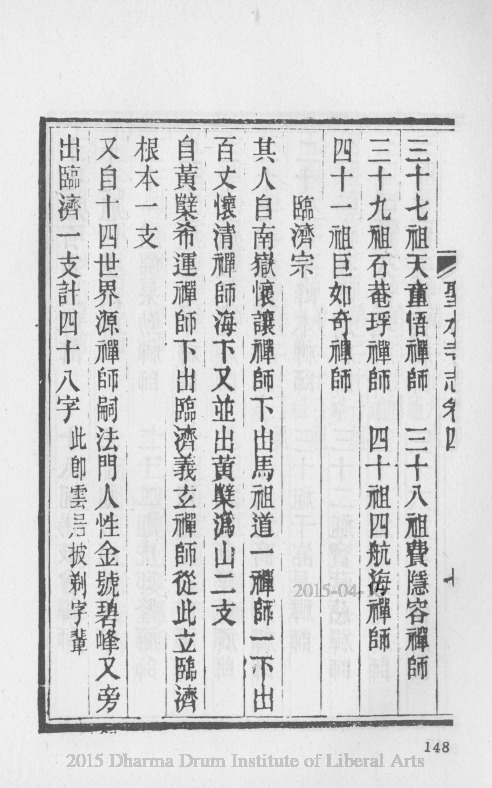 聖水寺志卷四
三十七祖天童悟禪師 三十八祖費隱容禪師
三十九祖石菴琈禪師 四十祖四航海禪師
四十一祖巨如奇禪師
臨濟宗
其人自南嶽懷讓禪師下出馬祖道一禪師一下出
百丈懷清禪師海下又並出黃檗溈山二支
自黃檗希運禪師下出臨濟義玄禪師從此立臨濟
根本一支
又自十四世界源禪師嗣法門人性金號碧峰又旁
出臨濟一支計四十八字 此卽雲居披剃字輩
148
2015-04-
2015 Dharma Drum Institute of Liberal Arts